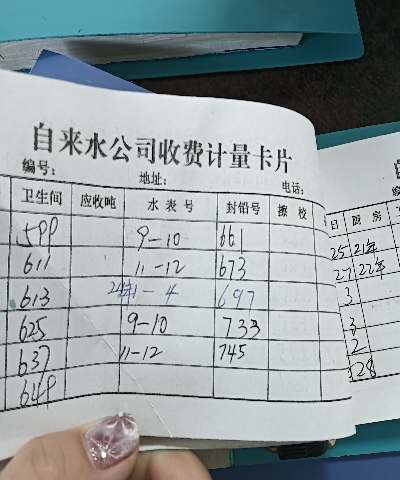 自来水公司收费计量卡片
编号： 地址： 电话：
卫生间 应收吨 水表号 封铅号 擦校
599 9-10 661
611 11-12 673
613 1-4 697
625 9-10 733
637 11-12 745
649
日 厨房
25 21年
27 22年
3
3
2
28